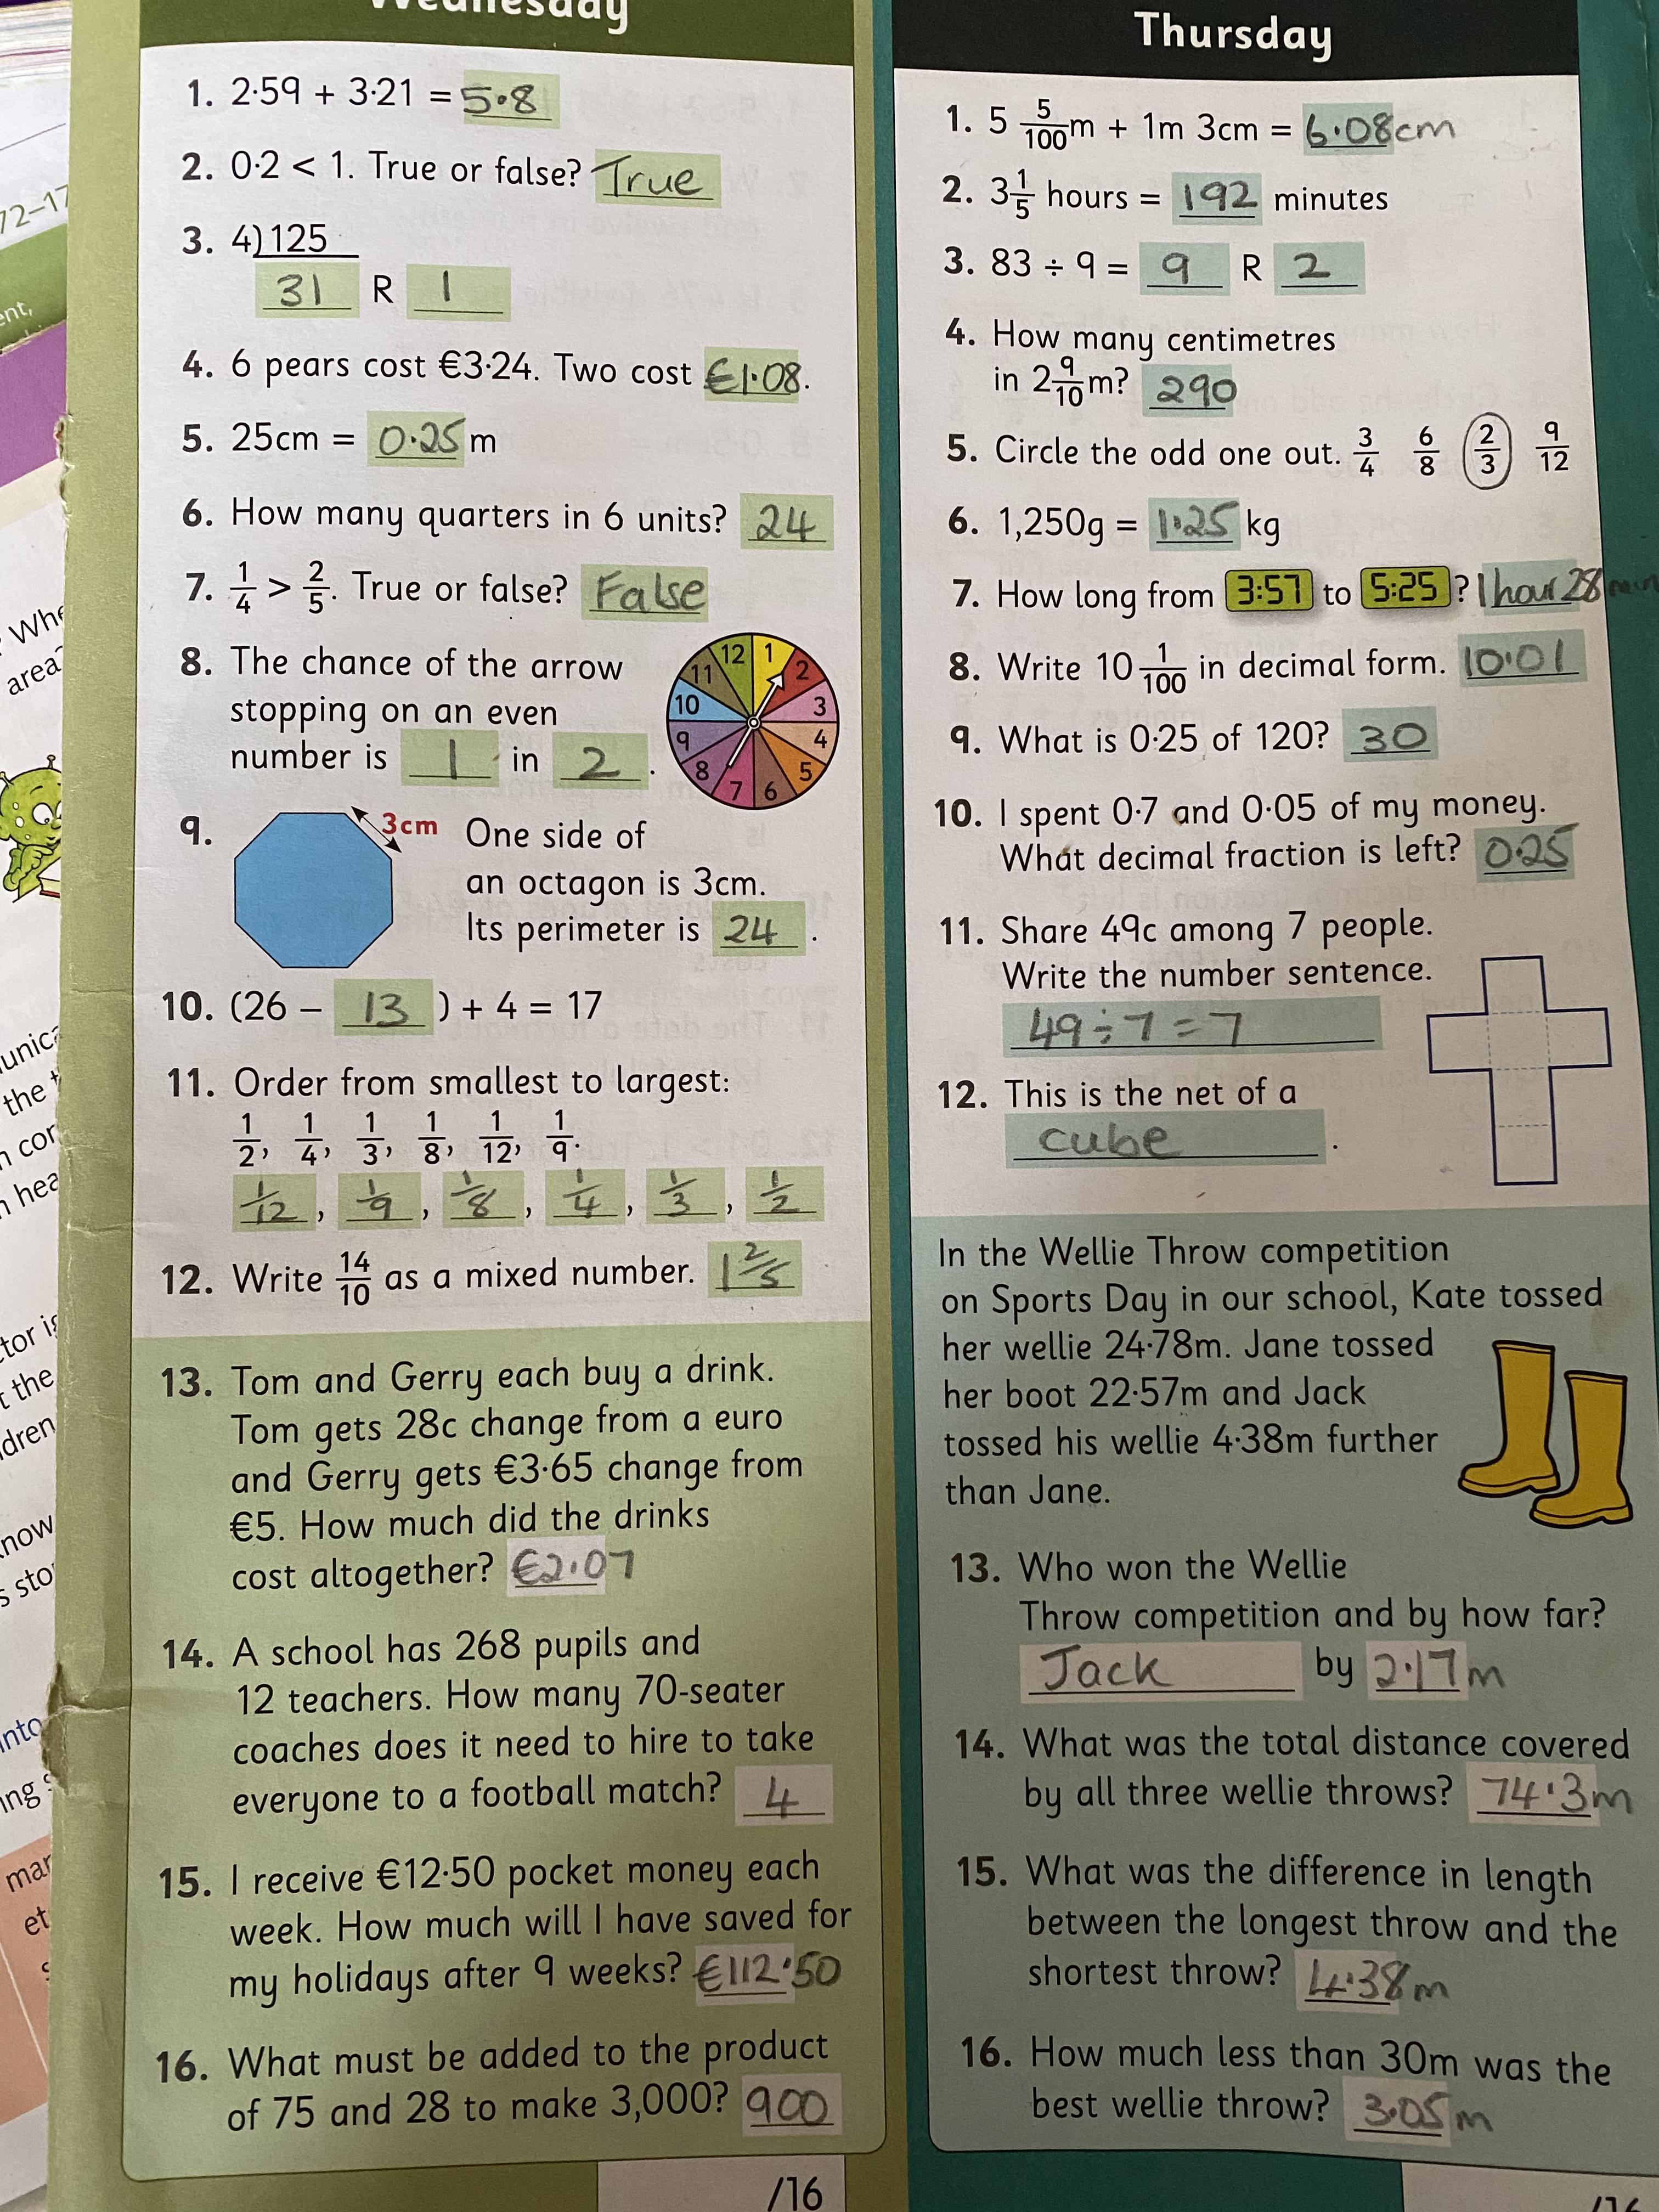 Wednesday
1. 2·59 + 3·21 = 5·8
2. 0·2 < 1. True or false? True
3. 4)125
31 R 1
4. 6 pears cost €3·24. Two cost €1·08.
5. 25cm = 0·25 m
6. How many quarters in 6 units? 24
7. 1/4 > 2/5. True or false? False
8. The chance of the arrow
stopping on an even
number is 1 in 2.
12 1 2 3 4 5 6 7 8 9 10 11
9. 3cm One side of
an octagon is 3cm.
Its perimeter is 24.
10. (26 – 13) + 4 = 17
11. Order from smallest to largest:
1/2, 1/4, 1/3, 1/8, 1/12, 1/9.
1/12, 1/9, 1/8, 1/4, 1/3, 1/2
12. Write 14/10 as a mixed number. 1 2/5
13. Tom and Gerry each buy a drink.
Tom gets 28c change from a euro
and Gerry gets €3·65 change from
€5. How much did the drinks
cost altogether? €2·07
14. A school has 268 pupils and
12 teachers. How many 70-seater
coaches does it need to hire to take
everyone to a football match? 4
15. I receive €12·50 pocket money each
week. How much will I have saved for
my holidays after 9 weeks? €112·50
16. What must be added to the product
of 75 and 28 to make 3,000? 900
/16
Thursday
1. 5 5/100m + 1m 3cm = 6·08cm
2. 3 1/5 hours = 192 minutes
3. 83 ÷ 9 = 9 R 2
4. How many centimetres
in 2 9/10m? 290
5. Circle the odd one out. 3/4 6/8 2/3 9/12
6. 1,250g = 1·25 kg
7. How long from 3:57 to 5:25? 1 hour 28 min
8. Write 10 1/100 in decimal form. 10·01
9. What is 0·25 of 120? 30
10. I spent 0·7 and 0·05 of my money.
What decimal fraction is left? 0·25
11. Share 49c among 7 people.
Write the number sentence.
49 ÷ 7 = 7
12. This is the net of a
cube.
In the Wellie Throw competition
on Sports Day in our school, Kate tossed
her wellie 24·78m. Jane tossed
her boot 22·57m and Jack
tossed his wellie 4·38m further
than Jane.
13. Who won the Wellie
Throw competition and by how far?
Jack by 2·17m
14. What was the total distance covered
by all three wellie throws? 74·3m
15. What was the difference in length
between the longest throw and the
shortest throw? 4·38m
16. How much less than 30m was the
best wellie throw? 3·05m
/16